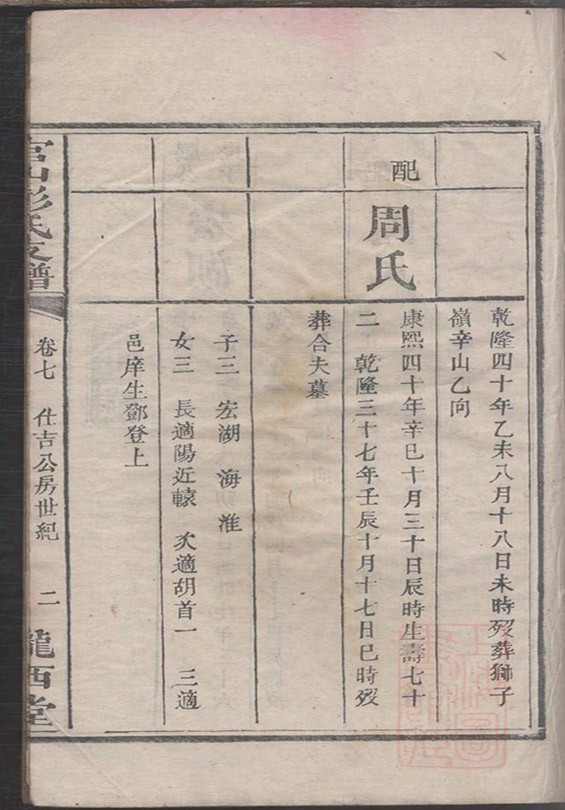 乾隆四十年乙未八月十八日未時歿葬獅子
嶺辛山乙向
配周氏
康熙四十年辛巳十月三十日辰時生壽七十
二 乾隆三十七年壬辰十月十七日巳時歿
葬合夫墓
子三 宏湖 海 淮
女三 長適陽近轅 次適胡首一 三適
邑庠生鄧登上
宮山彭氏支譜 卷七 仕吉公房世紀 二 隴西堂